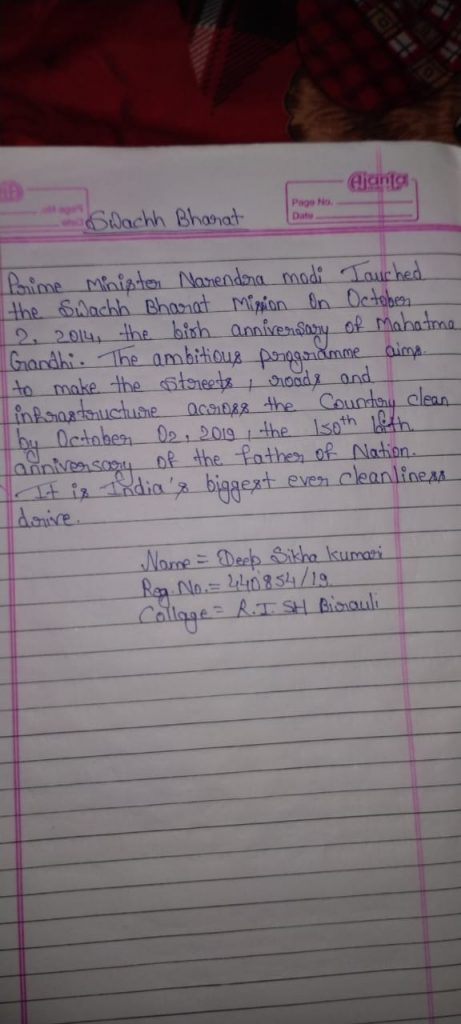 Ajanta
Page No.
Date
Swachh Bharat
Prime Minister Narendra modi Lauched
the Swachh Bharat Mission On October
2, 2014, the bith anniversary of Mahatma
Grandhi. The ambitious proggramme aims
to make the streets, roads and
infrastructure across the Country clean
by October 02, 2019, the 150th bith
anniversary of the father of Nation.
It is India's biggest ever cleanliness
drive.
Name = Deep Sikha kumari
Reg. No. = 440854/19
Collage = R.I.SH Birauli